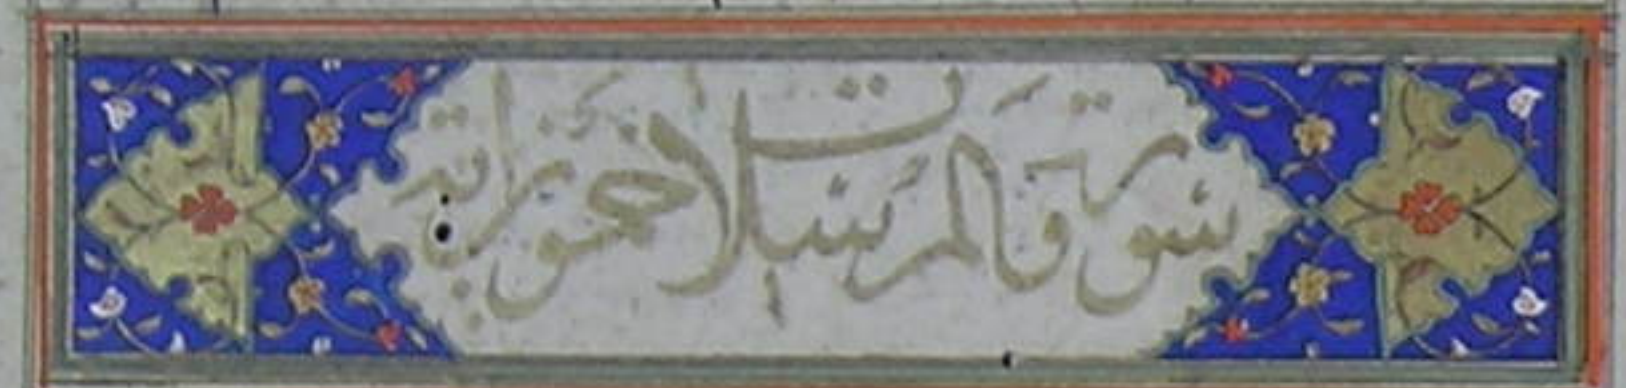 سورة والمرسلات خمسون اية